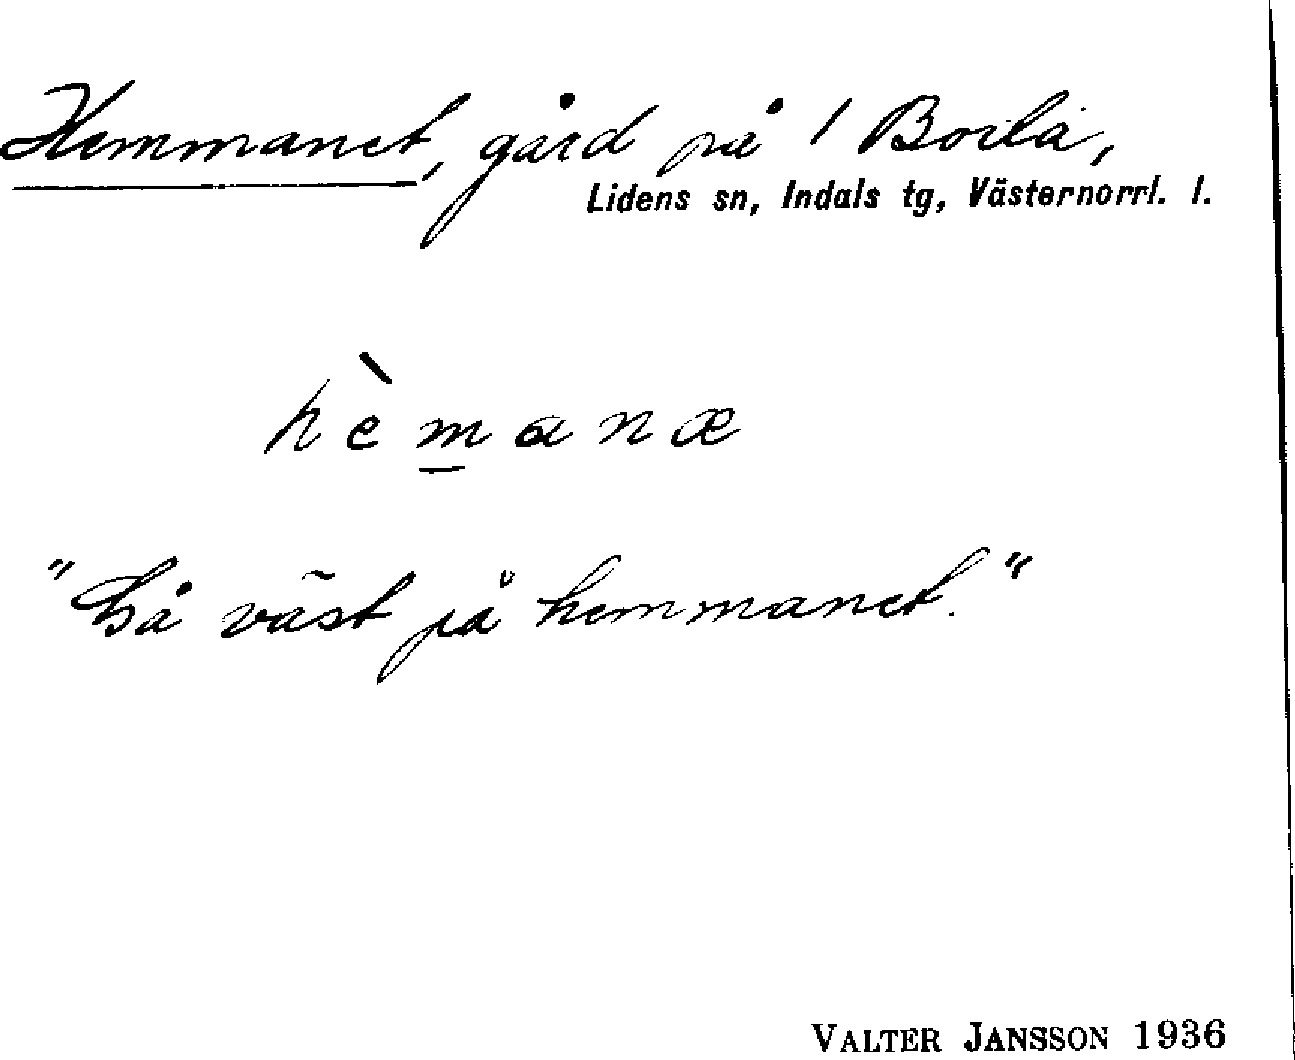 Hemmanet, gård på 1 Boda,
Lidens sn, Indals tg, Västernorrl. l.
hèmanæ
"Så väst på hemmanet."
VALTER JANSSON 1936